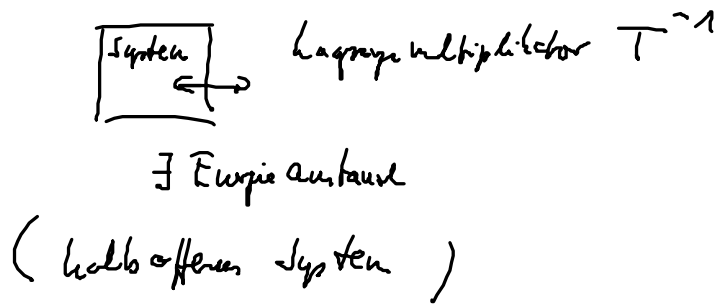 System Lagrangemultiplikator T⁻¹
∃ Energieaustausch
( halboffenes System )